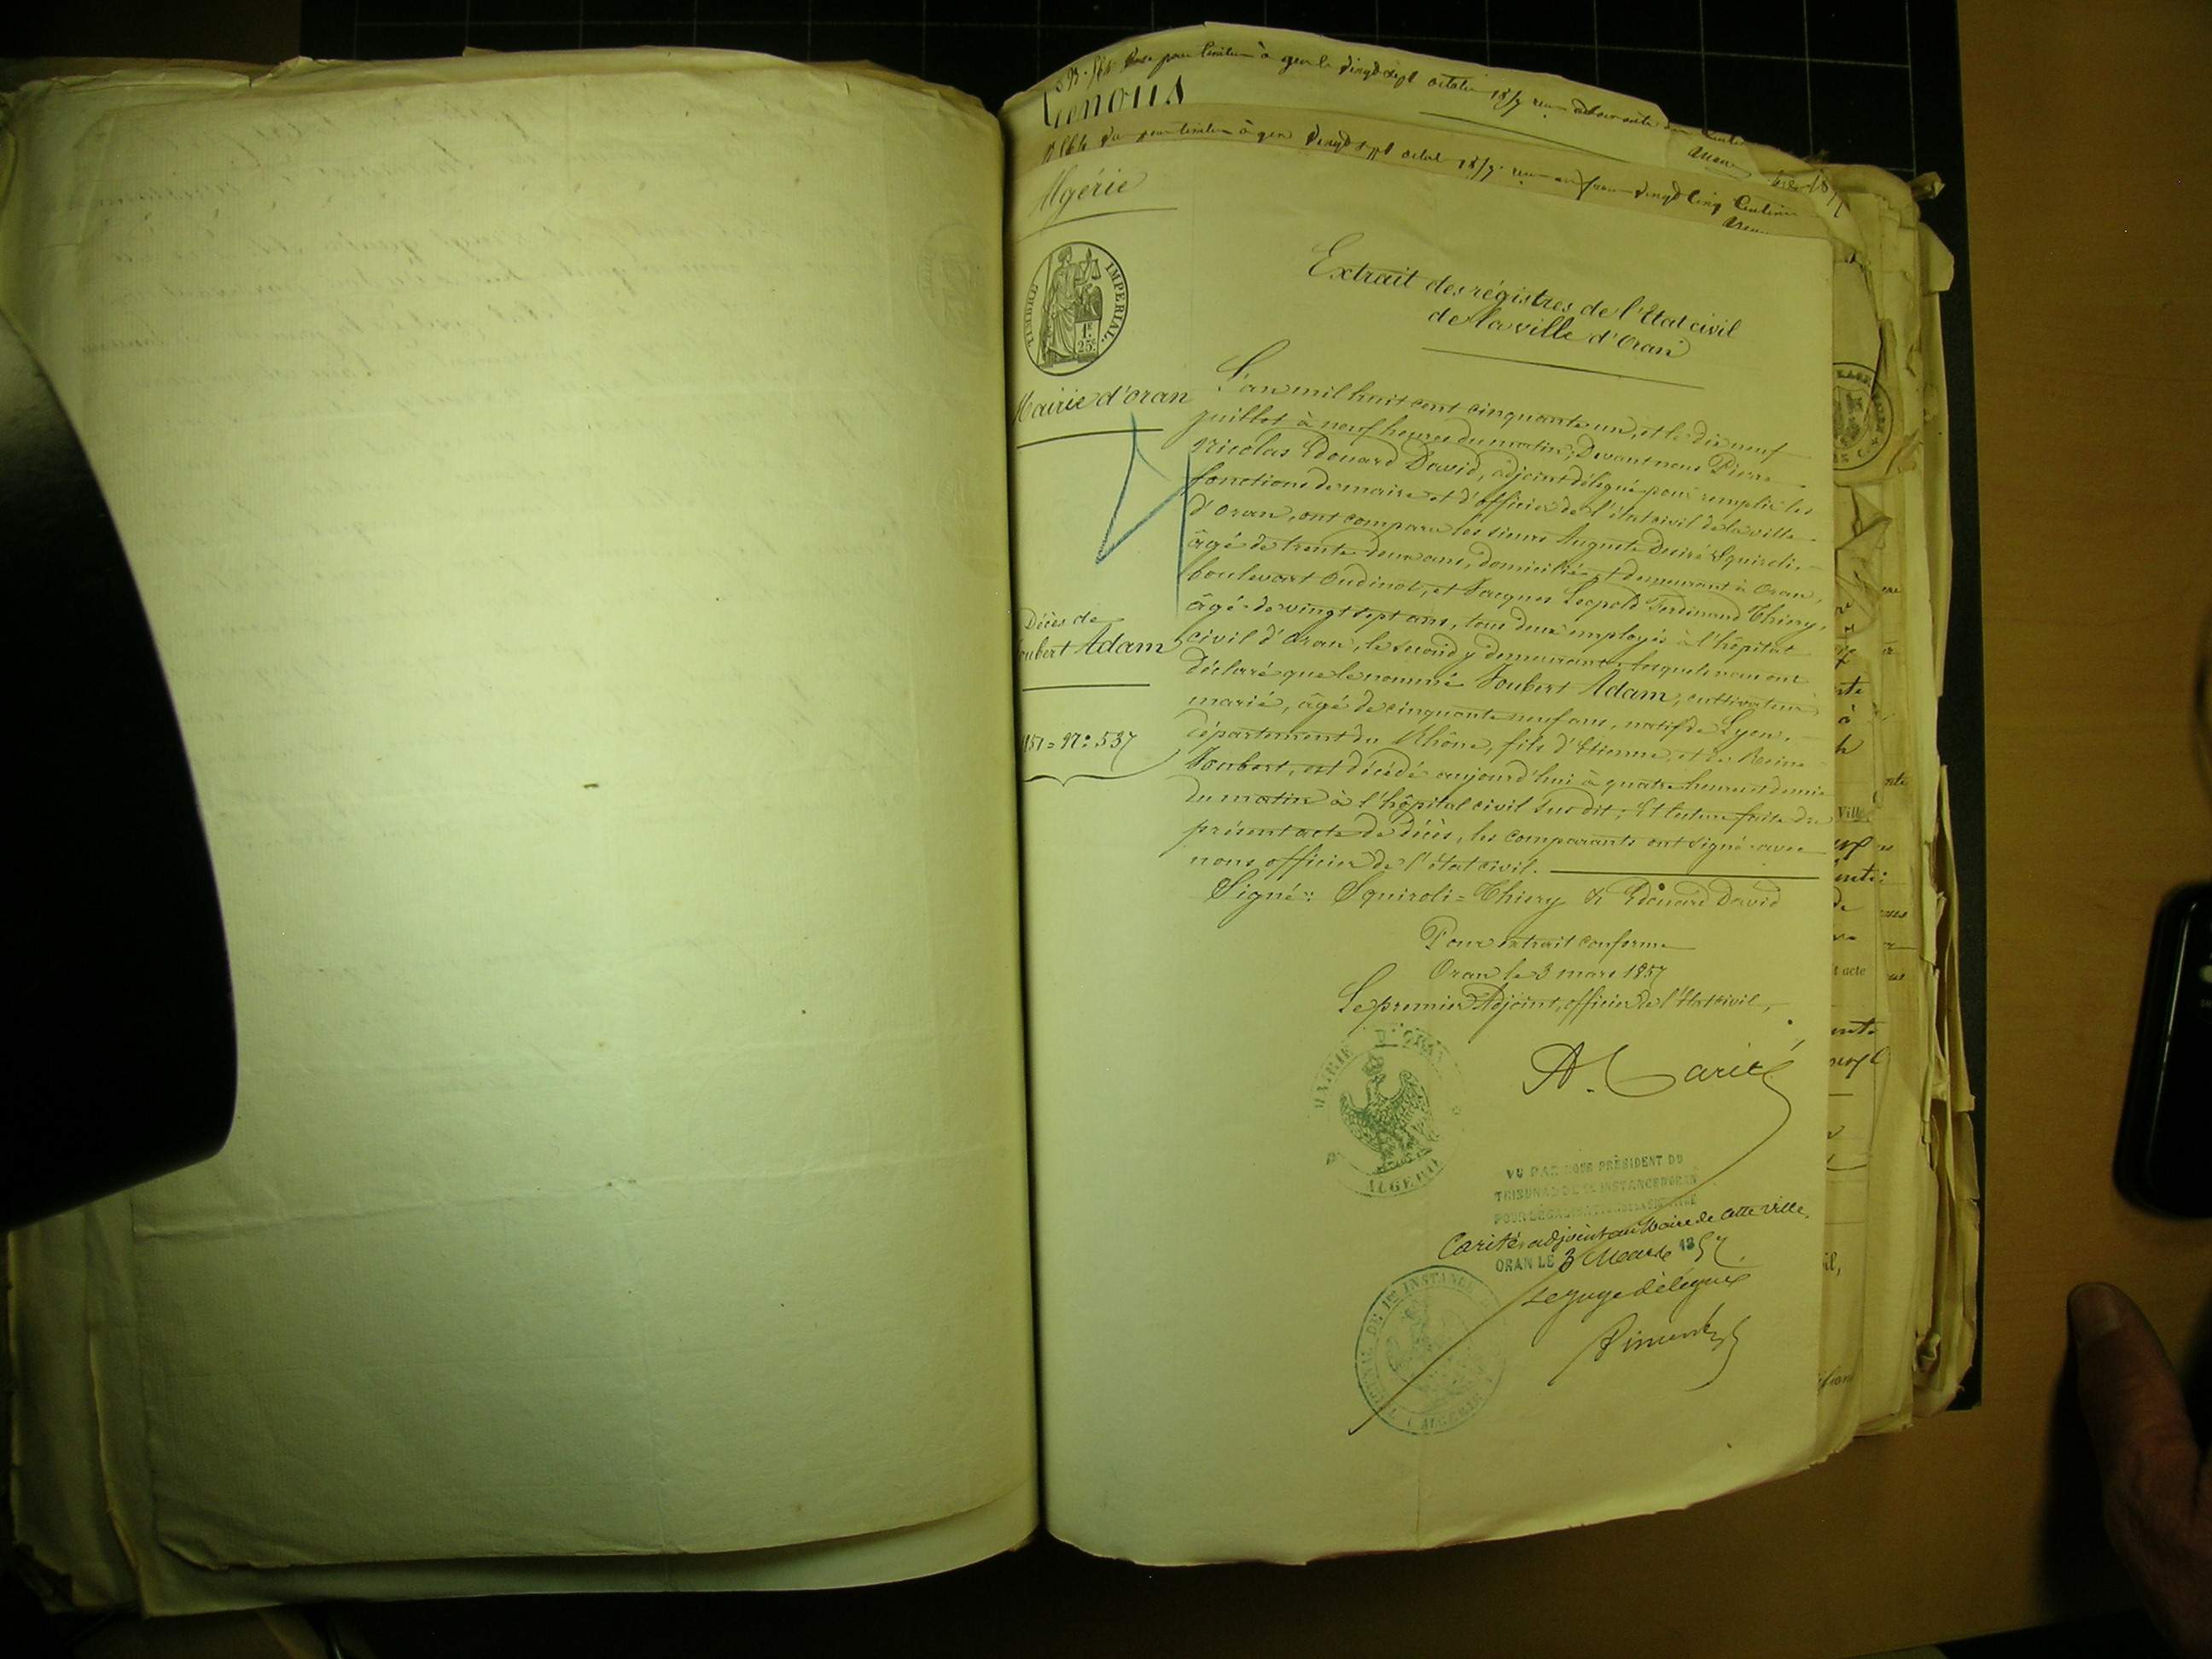 vingt sept octobre
Genous
vingt cinq centimes
Algérie
TIMBRE IMPERIAL
1F 25c
Extrait des régistres de l'Etat civil
de la ville d'Oran
Mairie d'oran
L'an mil huit cent cinquante un, et le dix neuf
juillet à neuf heures du matin, Devant nous Pierre
Nicolas Edouard David, adjoint délégué pour remplir les
fonctions de maire et d'officier de l'état civil de la ville
d'Oran, ont comparu les sieurs Auguste Desiré Squiroli,
âgé de trente deux ans, domicilié et demeurant à Oran,
boulevart Oudinot, et Jacques Léopold Ferdinand Thiery,
âgé de vingt sept ans, tous deux employés à l'hôpital
civil d'Oran, le second y demeurant, lesquels nous ont
déclaré que le nommé Joubert Adam, cultivateur
marié, âgé de cinquante neuf ans, natif de Lyon,
département du Rhône, fils d'Etienne, et de Reine
Joubert, est décédé aujourd'hui à quatre heures et demie
du matin à l'hôpital civil sus dit; Et lecture faite du
présent acte de décès, les comparants ont signé avec
nous officier de l'état civil.
Décès de
Joubert Adam
1851 = N° 537
Signé: Squiroli = Thiery & Edouard David
Pour extrait conforme
Oran le 3 mars 1857
Le premier Adjoint, officier de l'Etat civil,
A. Carité
MAIRIE D'ORAN
ALGERIE
VU PAR NOUS PRÉSIDENT DU
TRIBUNAL DE 1e INSTANCE D'ORAN
POUR LEGALISATION DE LA SIGNATURE
Carité adjoint au Maire de cette ville.
ORAN LE 3 Mars 1857
Le juge délégué
DE 1re INSTANCE
ALGERIE